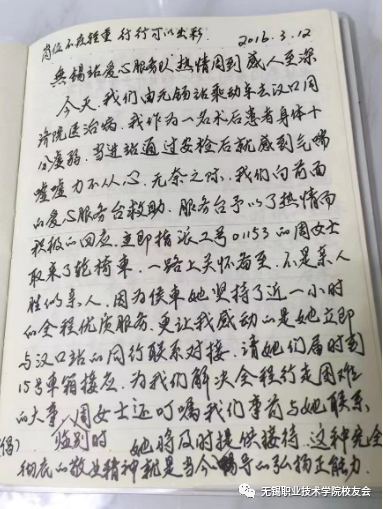 岗位不在轻重 行行可以出彩. 2016.3.12
无锡站爱心服务队热情周到感人至深
今天我们由无锡站乘动车去汉口同
济院医治病.我作为一名术后患者身体十
分虚弱.当进站通过安检后就感到气喘
嘘嘘力不从心.无奈之际,我们向前面
的爱心服务台救助.服务台予以了热情而
积极的回应.立即指派工号01153的周女士
取来了轮椅车.一路上关怀备至.不是亲人
胜似亲人.因为侯车她坚持了近一小时
的全程优质服务.更让我感动的是她立即
与汉口站的同行联系对接.请她们届时到
15号车箱接应.为我们解决全程行走困难
的大事.周女士还叮嘱我们事前与她联系.
临别时 她将及时提供接待.这种完全
彻底的敬业精神就是当今倡导的弘扬正能力.
无锡职业技术学院校友会